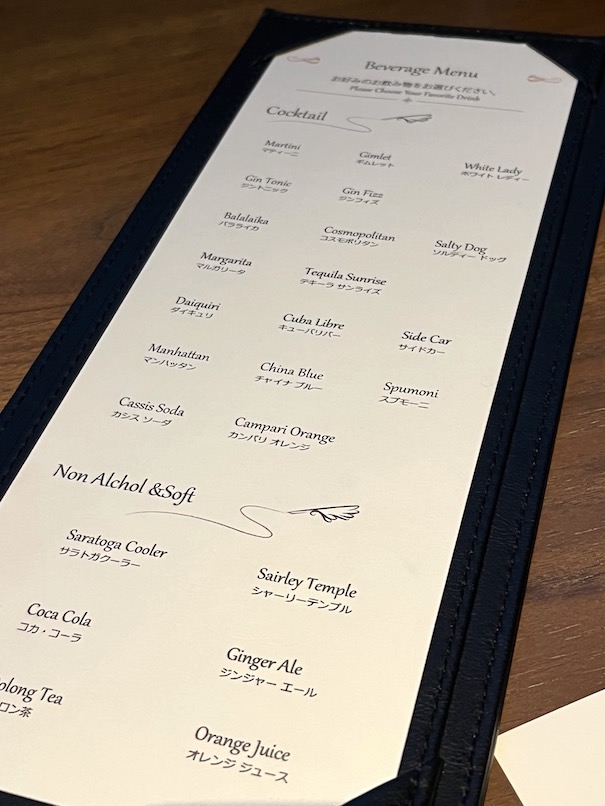 Beverage Menu
お好みのお飲み物をお選びください。
Please Choose Your Favorite Drink
Cocktail
Martini
マティーニ
Gimlet
ギムレット
White Lady
ホワイト レディー
Gin Tonic
ジントニック
Gin Fizz
ジンフィズ
Balalaika
バラライカ
Cosmopolitan
コスモポリタン
Salty Dog
ソルティー ドッグ
Margarita
マルガリータ
Tequila Sunrise
テキーラ サンライズ
Daiquiri
ダイキュリ
Cuba Libre
キューバリバー
Side Car
サイドカー
Manhattan
マンハッタン
China Blue
チャイナ ブルー
Spumoni
スプモーニ
Cassis Soda
カシス ソーダ
Campari Orange
カンパリ オレンジ
Non Alchol &Soft
Saratoga Cooler
サラトガクーラー
Sairley Temple
シャーリーテンプル
Coca Cola
コカ・コーラ
Ginger Ale
ジンジャー エール
olong Tea
ロン茶
Orange Juice
オレンジ ジュース